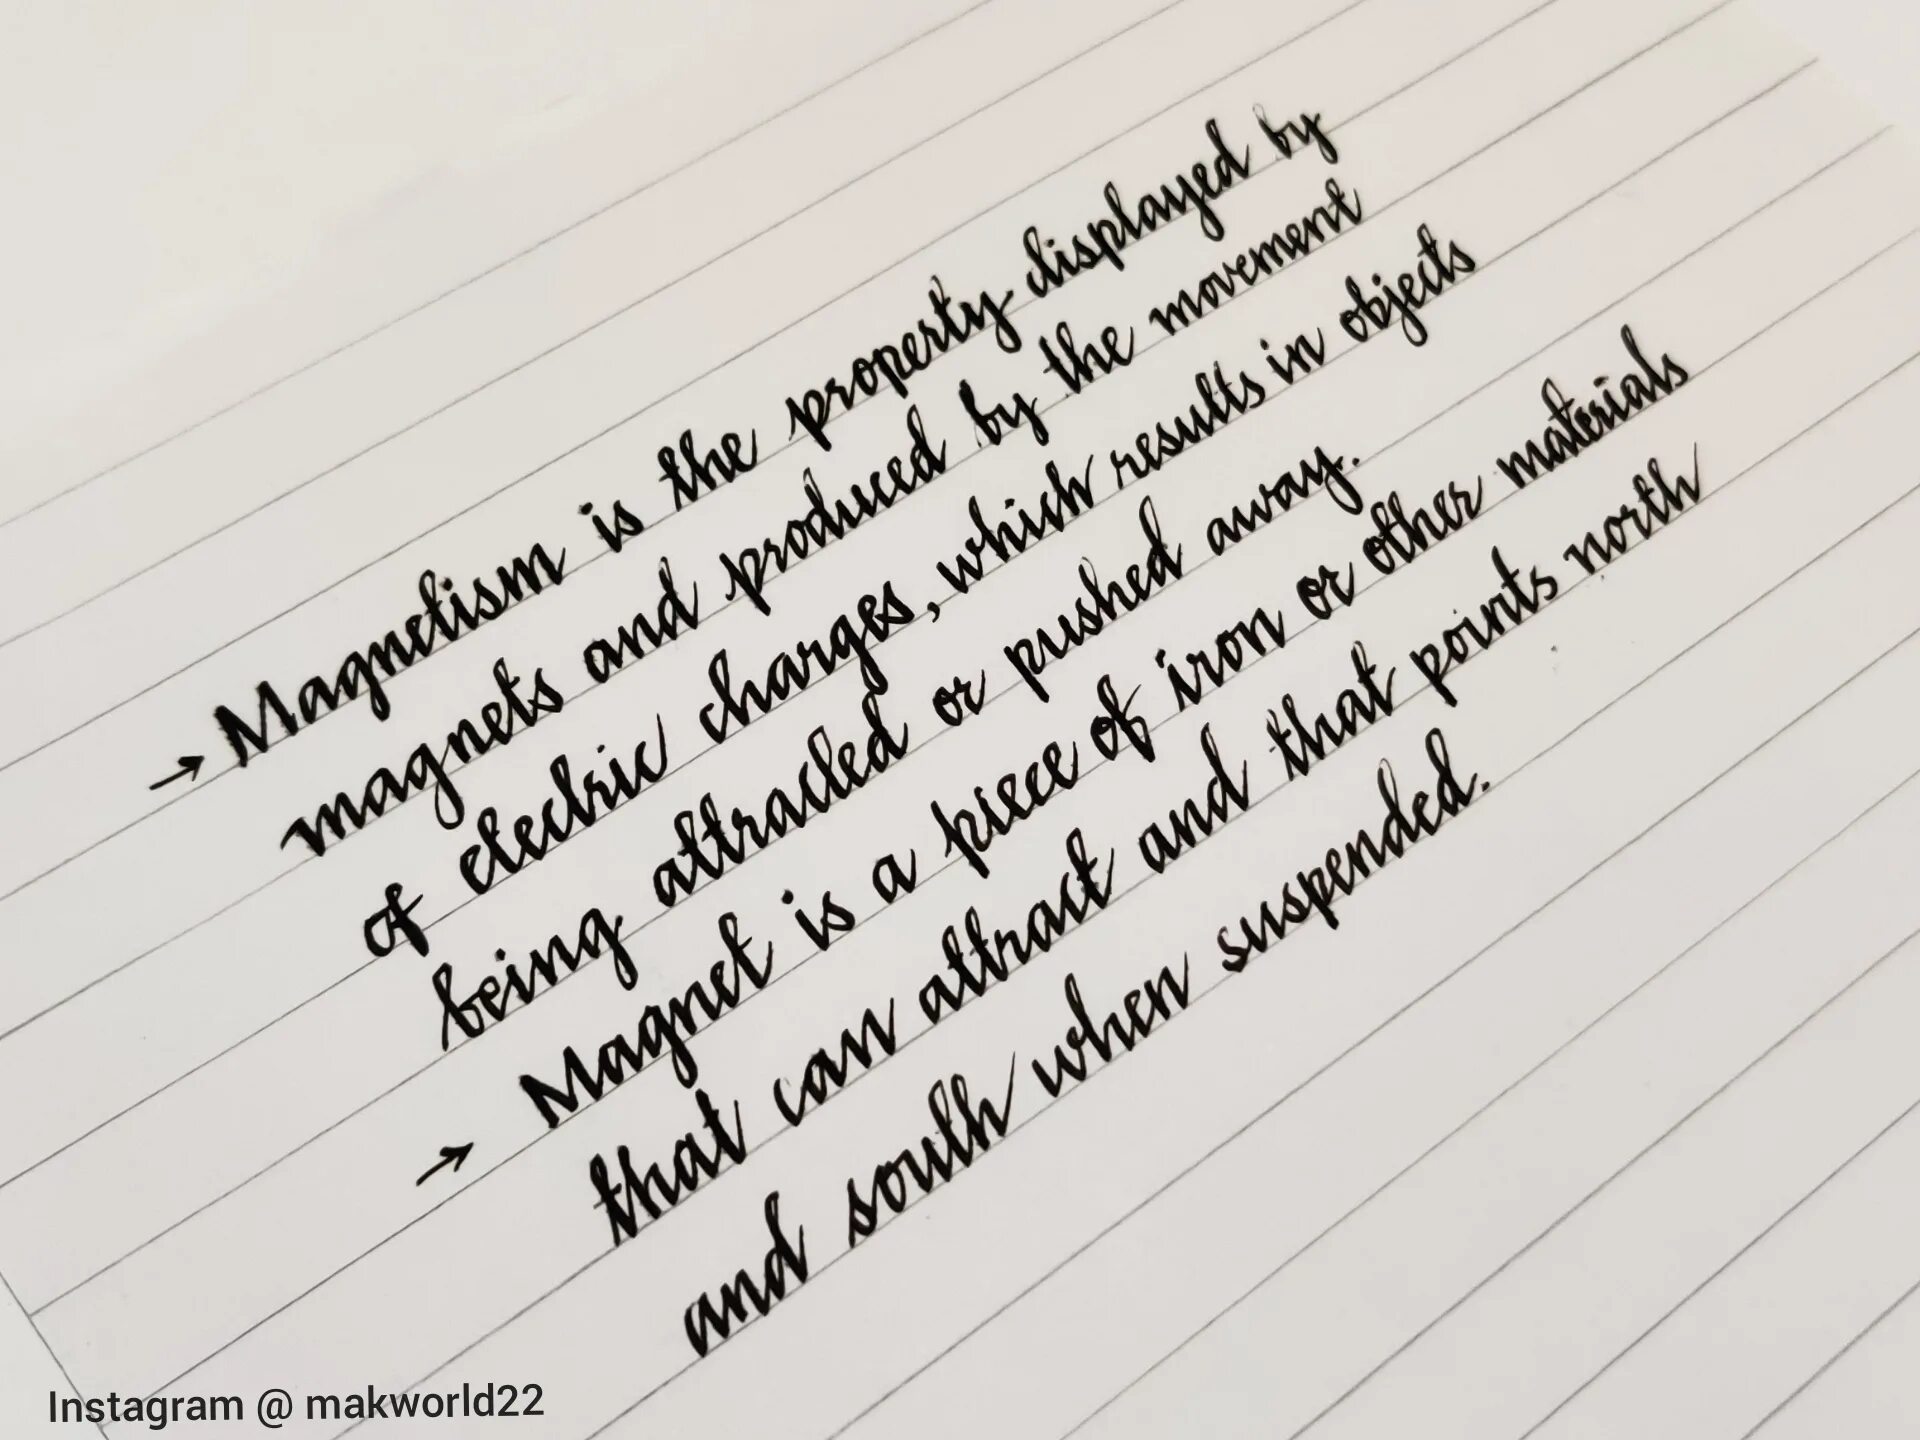 → Magnetism is the property displayed by
magnets and produced by the movement
of electric charges, which results in objects
being attracted or pushed away.
→ Magnet is a piece of iron or other materials
that can attract and that points north
and south when suspended.
Instagram @ makworld22